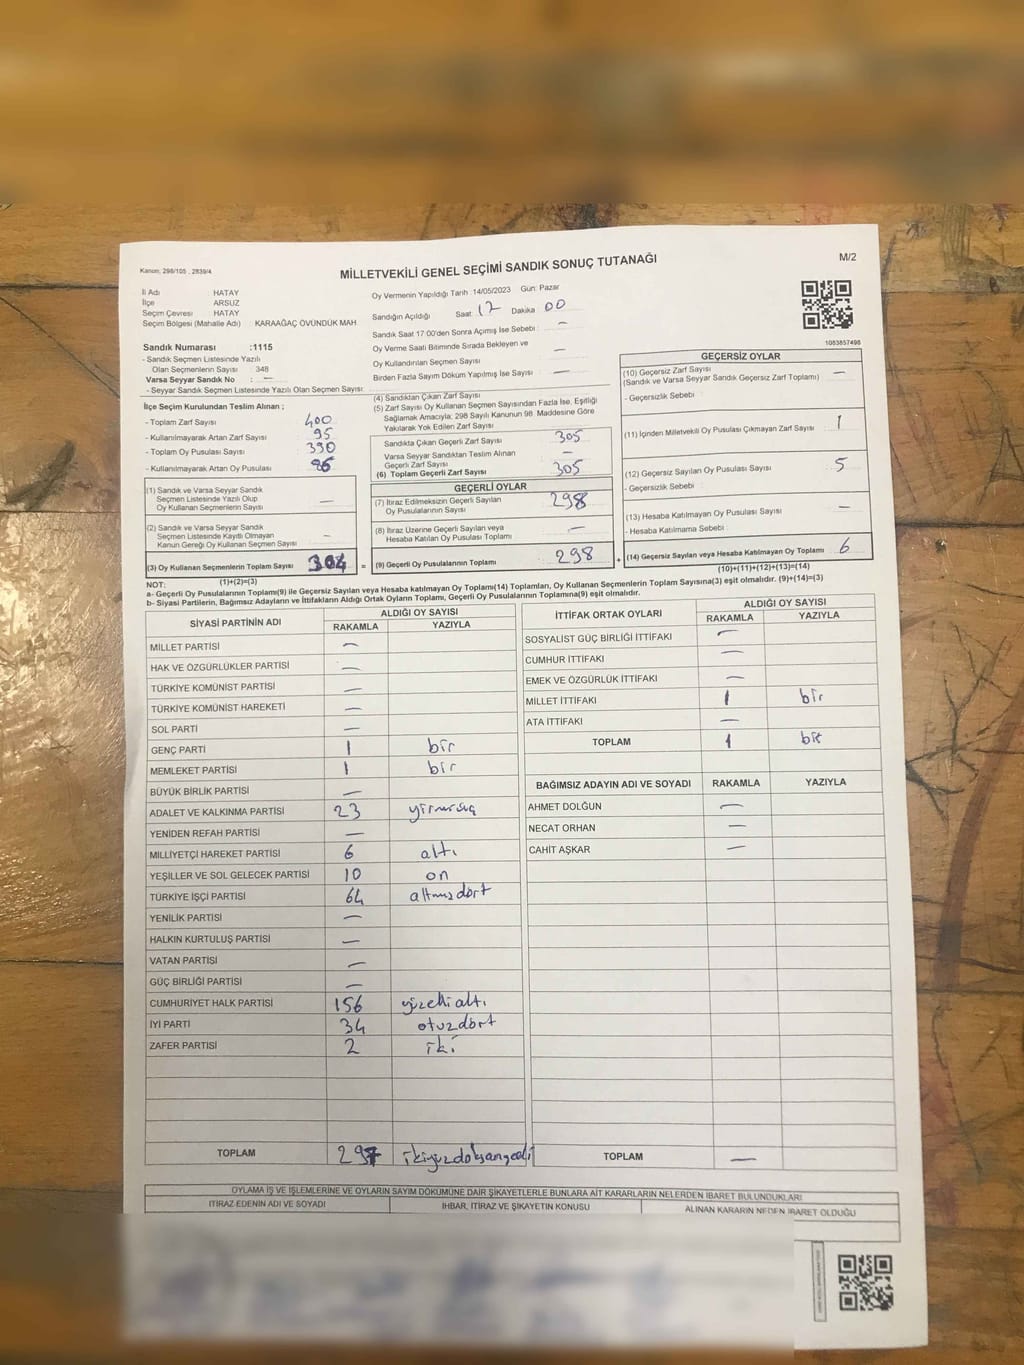 Kanun, 298/105 , 2839/4
MİLLETVEKİLİ GENEL SEÇİMİ SANDIK SONUÇ TUTANAĞI
M/2
İl Adı HATAY
İlçe ARSUZ
Seçim Çevresi HATAY
Seçim Bölgesi (Mahalle Adı) KARAAĞAÇ ÖVÜNDÜK MAH.
Oy Vermenin Yapıldığı Tarih :14/05/2023 Gün: Pazar
Sandığın Açıldığı Saat: 17 Dakika 00
Sandık Saat 17:00'den Sonra Açımış İse Sebebi : —
Oy Verme Saati Bitiminde Sırada Bekleyen ve
Oy Kullandırılan Seçmen Sayısı —
Birden Fazla Sayım Döküm Yapılmış İse Sayısı —
1083857498
Sandık Numarası :1115
- Sandık Seçmen Listesinde Yazılı
Olan Seçmenlerin Sayısı : 348
Varsa Seyyar Sandık No : —
- Seyyar Sandık Seçmen Listesinde Yazılı Olan Seçmen Sayısı:
İlçe Seçim Kurulundan Teslim Alınan ;
- Toplam Zarf Sayısı 400
- Kullanılmayarak Artan Zarf Sayısı 95
- Toplam Oy Pusulası Sayısı 390
- Kullanılmayarak Artan Oy Pusulası
(1) Sandık ve Varsa Seyyar Sandık
Seçmen Listesinde Yazılı Olup
Oy Kullanan Seçmenlerin Sayısı —
(2) Sandık ve Varsa Seyyar Sandık
Seçmen Listesinde Kayıtlı Olmayan
Kanun Gereği Oy Kullanan Seçmen Sayısı —
(3) Oy Kullanan Seçmenlerin Toplam Sayısı 304 =
(1)+(2)=(3)
(4) Sandıktan Çıkan Zarf Sayısı
(5) Zarf Sayısı Oy Kullanan Seçmen Sayısından Fazla İse, Eşitliği
Sağlamak Amacıyla, 298 Sayılı Kanunun 98. Maddesine Göre
Yakılarak Yok Edilen Zarf Sayısı
Sandıkta Çıkan Geçerli Zarf Sayısı 305
Varsa Seyyar Sandıktan Teslim Alınan
Geçerli Zarf Sayısı —
(6) Toplam Geçerli Zarf Sayısı 305
GEÇERLİ OYLAR
(7) İtiraz Edilmeksizin Geçerli Sayılan
Oy Pusulalarının Sayısı 298
(8) İtiraz Üzerine Geçerli Sayılan veya
Hesaba Katılan Oy Pusulası Toplamı —
(9) Geçerli Oy Pusulalarının Toplamı 298 +
GEÇERSİZ OYLAR
(10) Geçersiz Zarf Sayısı —
(Sandık ve Varsa Seyyar Sandık Geçersiz Zarf Toplamı)
- Geçersizlik Sebebi :
(11) İçinden Milletvekili Oy Pusulası Çıkmayan Zarf Sayısı 1
(12) Geçersiz Sayılan Oy Pusulası Sayısı 5
- Geçersizlik Sebebi :
(13) Hesaba Katılmayan Oy Pusulası Sayısı —
- Hesaba Katılmama Sebebi :
(14) Geçersiz Sayılan veya Hesaba Katılmayan Oy Toplamı 6
(10)+(11)+(12)+(13)=(14)
NOT:
a- Geçerli Oy Pusulalarının Toplamı(9) ile Geçersiz Sayılan veya Hesaba katılmayan Oy Toplamı(14) Toplamları, Oy Kullanan Seçmenlerin Toplam Sayısına(3) eşit olmalıdır. (9)+(14)=(3)
b- Siyasi Partilerin, Bağımsız Adayların ve İttifakların Aldığı Ortak Oyların Toplamı, Geçerli Oy Pusulalarının Toplamına(9) eşit olmalıdır.
SİYASİ PARTİNİN ADI ALDIĞI OY SAYISI
RAKAMLA YAZIYLA
MİLLET PARTİSİ —
HAK VE ÖZGÜRLÜKLER PARTİSİ —
TÜRKİYE KOMÜNİST PARTİSİ —
TÜRKİYE KOMÜNİST HAREKETİ —
SOL PARTİ —
GENÇ PARTİ 1 bir
MEMLEKET PARTİSİ 1 bir
BÜYÜK BİRLİK PARTİSİ —
ADALET VE KALKINMA PARTİSİ 23 yirmiüç
YENİDEN REFAH PARTİSİ —
MİLLİYETÇİ HAREKET PARTİSİ 6 altı
YEŞİLLER VE SOL GELECEK PARTİSİ 10 on
TÜRKİYE İŞÇİ PARTİSİ 64 altmışdört
YENİLİK PARTİSİ —
HALKIN KURTULUŞ PARTİSİ —
VATAN PARTİSİ —
GÜÇ BİRLİĞİ PARTİSİ —
CUMHURİYET HALK PARTİSİ 156 yüzelli altı
İYİ PARTİ 34 otuzdört
ZAFER PARTİSİ 2 iki
TOPLAM 297 ikiyüzdoksanyedi
İTTİFAK ORTAK OYLARI ALDIĞI OY SAYISI
RAKAMLA YAZIYLA
SOSYALİST GÜÇ BİRLİĞİ İTTİFAKI —
CUMHUR İTTİFAKI —
EMEK VE ÖZGÜRLÜK İTTİFAKI —
MİLLET İTTİFAKI 1 bir
ATA İTTİFAKI —
TOPLAM 1 bir
BAĞIMSIZ ADAYIN ADI VE SOYADI RAKAMLA YAZIYLA
AHMET DOLĞUN —
NECAT ORHAN —
CAHİT AŞKAR —
TOPLAM —
OYLAMA İŞ VE İŞLEMLERİNE VE OYLARIN SAYIM DÖKÜMÜNE DAİR ŞİKAYETLERLE BUNLARA AİT KARARLARIN NELERDEN İBARET BULUNDUKLARI
İTİRAZ EDENİN ADI VE SOYADI İHBAR, İTİRAZ VE ŞİKAYETİN KONUSU ALINAN KARARIN NEDEN İBARET OLDUĞU